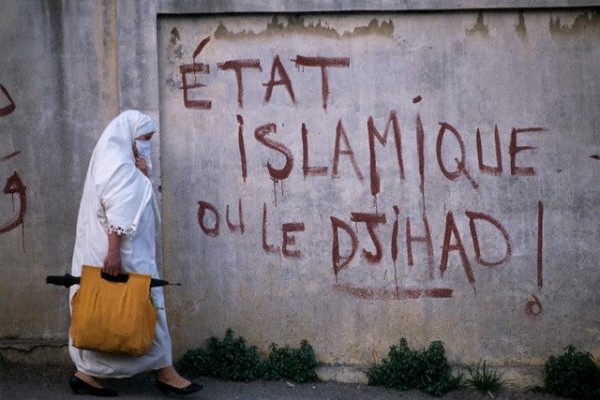 ÉTAT
iSLAMiQUE
OU LE DJiHAD!